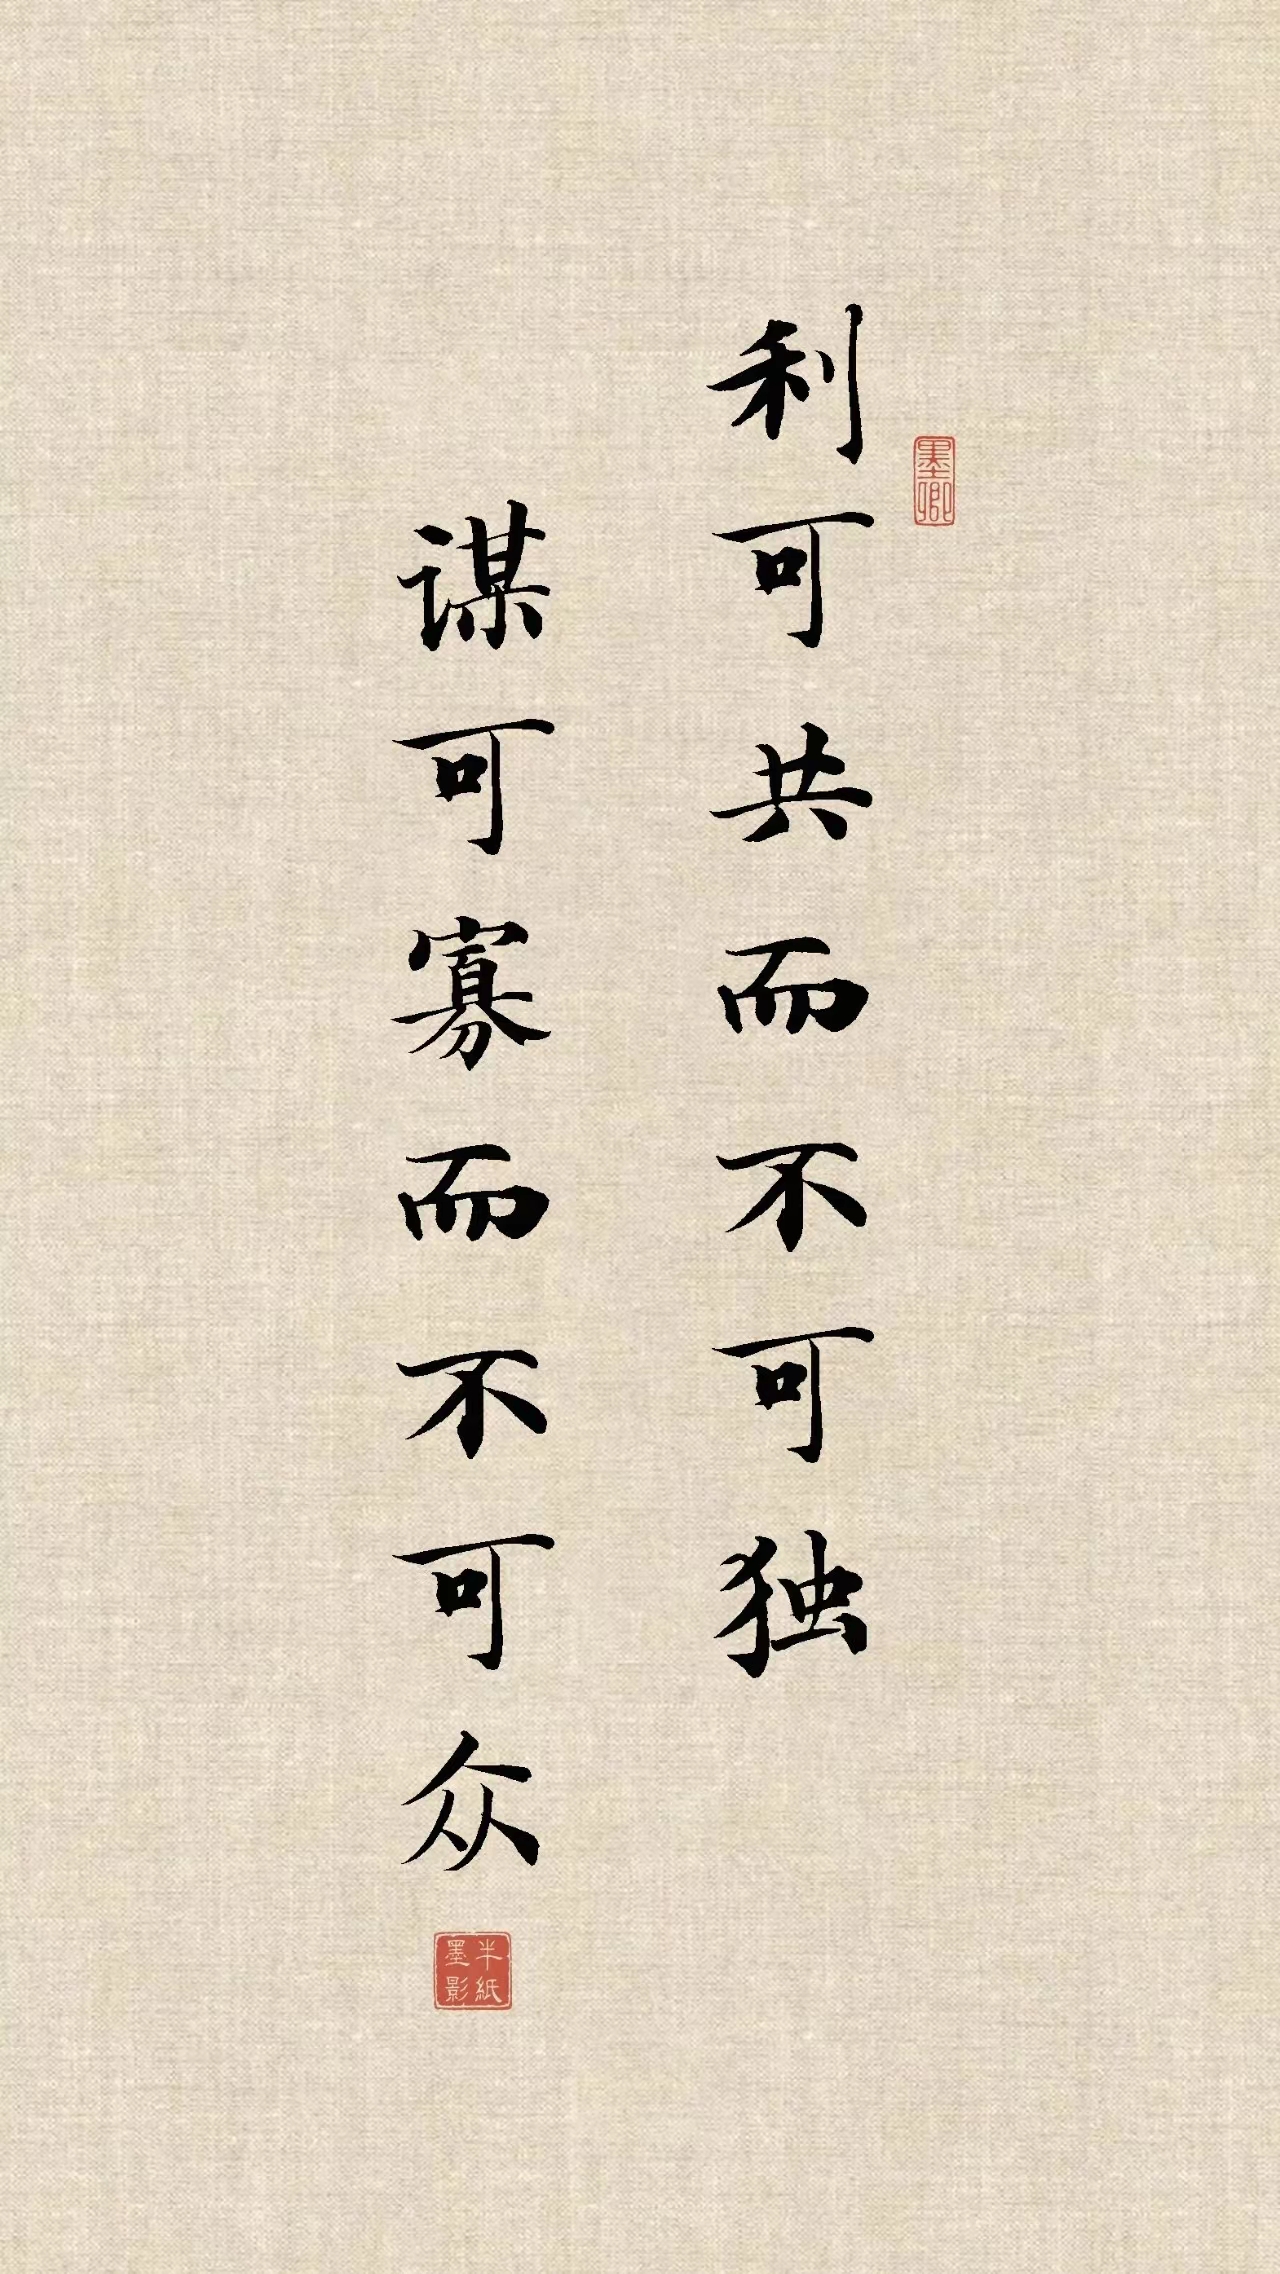 利可共而不可独
墨卿
谋可寡而不可众
半紙
墨影